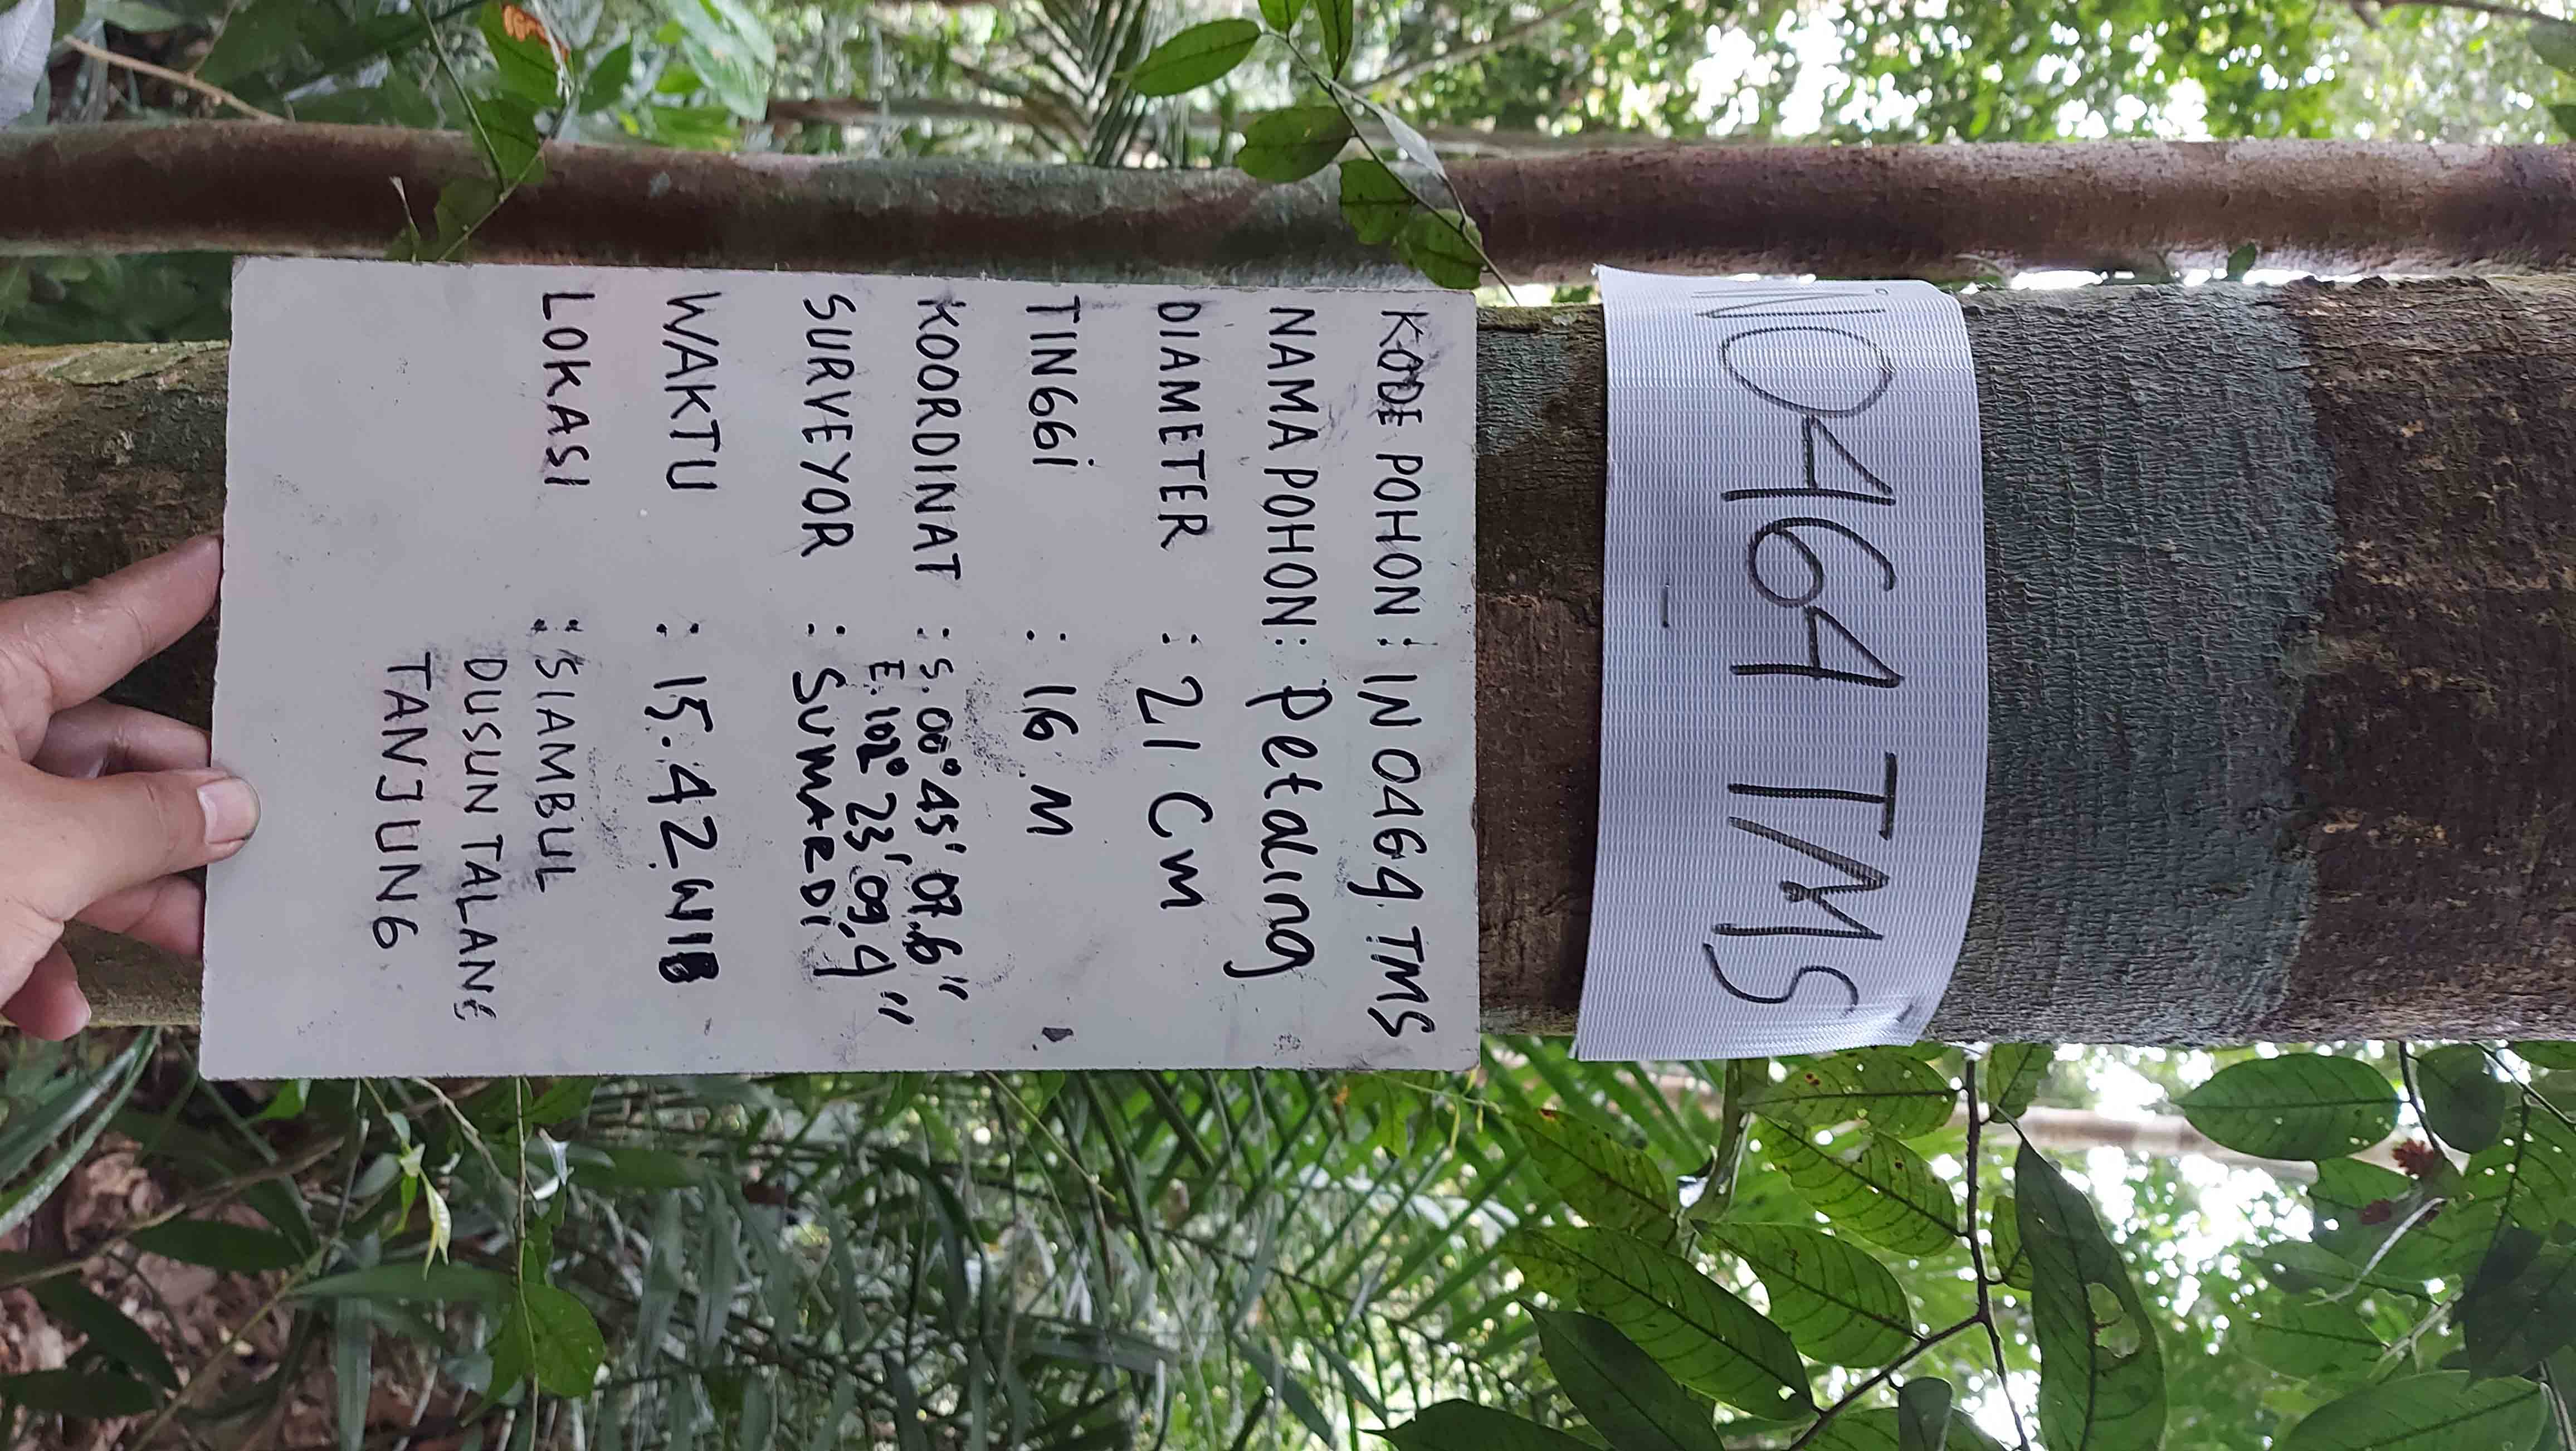 IN0464 TMS
KODE POHON : IN 0464 TMS
NAMA POHON : Petaling
DIAMETER : 21 Cm
TINGGi : 16 M
KOORDINAT : S. 00° 45' 07.6"
E. 102° 23' 09.4"
SURVEYOR : SUMARDI
WAKTU : 15.42 WIB
LOKASI : SIAMBUL
DUSUN TALANG
TANJUNG